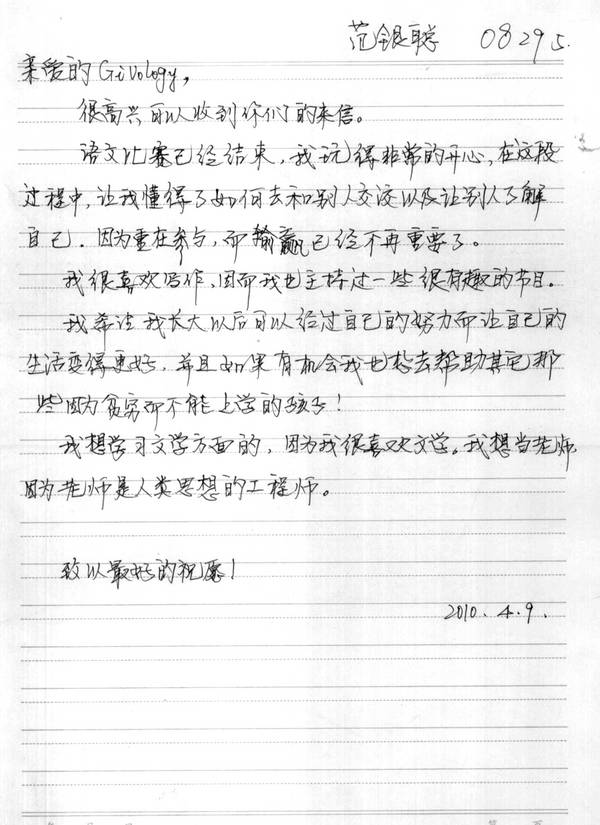 范银聪 08295.
亲爱的Givology,
很高兴可以收到你们的来信。
语文比赛已经结束，我玩得非常的开心，在这段
过程中，让我懂得了如何去和别人交谈以及让别人了解
自己．因为重在参与，而输赢已经不再重要了。
我很喜欢写作，因而我也主持过一些很有趣的节目．
我希望我长大以后可以经过自己的努力而让自己的
生活变得更好，并且如果有机会我也想去帮助其它那
些因为贫穷而不能上学的孩子！
我想学习文学方面的，因为我很喜欢文学。我想当老师，
因为老师是人类思想的工程师。
致以最好的祝愿！
2010.4.9.